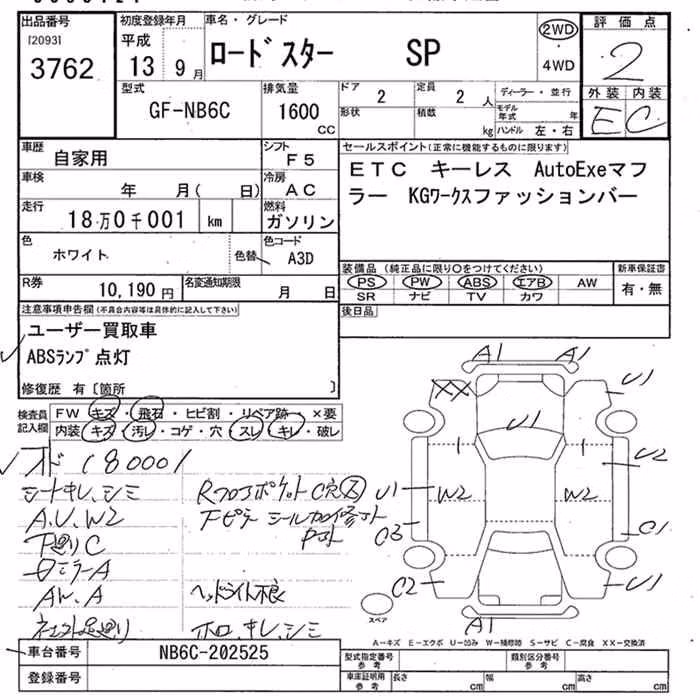 出品番号
[2093]
3762
初度登録年月
平成
13 9月
車名・グレード
ロードスター SP
2WD
・
4WD
評価点
2
外装 内装
E C
型式
GF-NB6C
排気量
1600
CC
ドア
2
定員
2 人
形状
積載
kg
ディーラー・並行
モデル年式 年
ハンドル 左・右
車歴
自家用
シフト
F5
車検
年 月( 日)
冷房
AC
走行
18万0千001 km
燃料
ガソリン
色
ホワイト
色替
色コード
A3D
R券
10,190円
名変通知期限
月 日
セールスポイント(正常に機能するものに限ります)
ETC キーレス AutoExeマフ
ラー KGワークスファッションバー
装備品 (純正品に限り○をつけてください)
PS PW ABS エアB AW
SR ナビ TV カワ
新車保証書
有・無
後日品
注意事項申告欄(不具合内容等は具体的に記入して下さい)
ユーザー買取車
ABSランプ点灯
修復歴 有〔箇所 〕
検査員
記入欄
FW キズ・飛石・ヒビ割・リペア跡・×要
内装 キズ・汚レ・コゲ・穴・スレ・キレ・破レ
180001
シートキレ、シミ
A.U.W2
下廻りC
ロミラーA
AW.A
社外足廻り
Rフロアポケット C穴
ヘッドライト不良
ホロ、キレ、シミ
A1 A1
XX
U1
U1
U2
U1
W2
W2
C3
C1
C2
U1
A1
スペア
A−キズ E−エクボ U−凹み W−補修跡 S−サビ C−腐食 XX−交換済
車台番号
NB6C-202525
登録番号
型式指定番号
参考
類別区分番号
参考
車庫証明用
参考
長さ cm
幅 cm
高さ cm